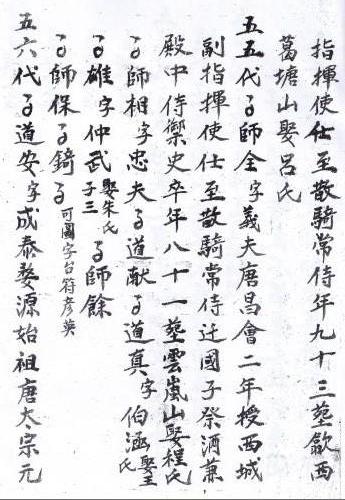 指揮使仕至散騎常侍年九十三塟歙西
葛塘山娶呂氏
五五代子師全字義夫唐昌會二年授西城
副指揮使仕至散騎常侍迁國子祭酒兼
殿中侍禦史卒年八十一塟雲嵐山娶程氏
子師相字忠夫子道献子道真字伯涵娶王氏
子雄字仲武娶朱氏子三子師餘
子師保子錡子可圖字台符彦英
五六代子道安字成泰婺源始祖唐太宗元